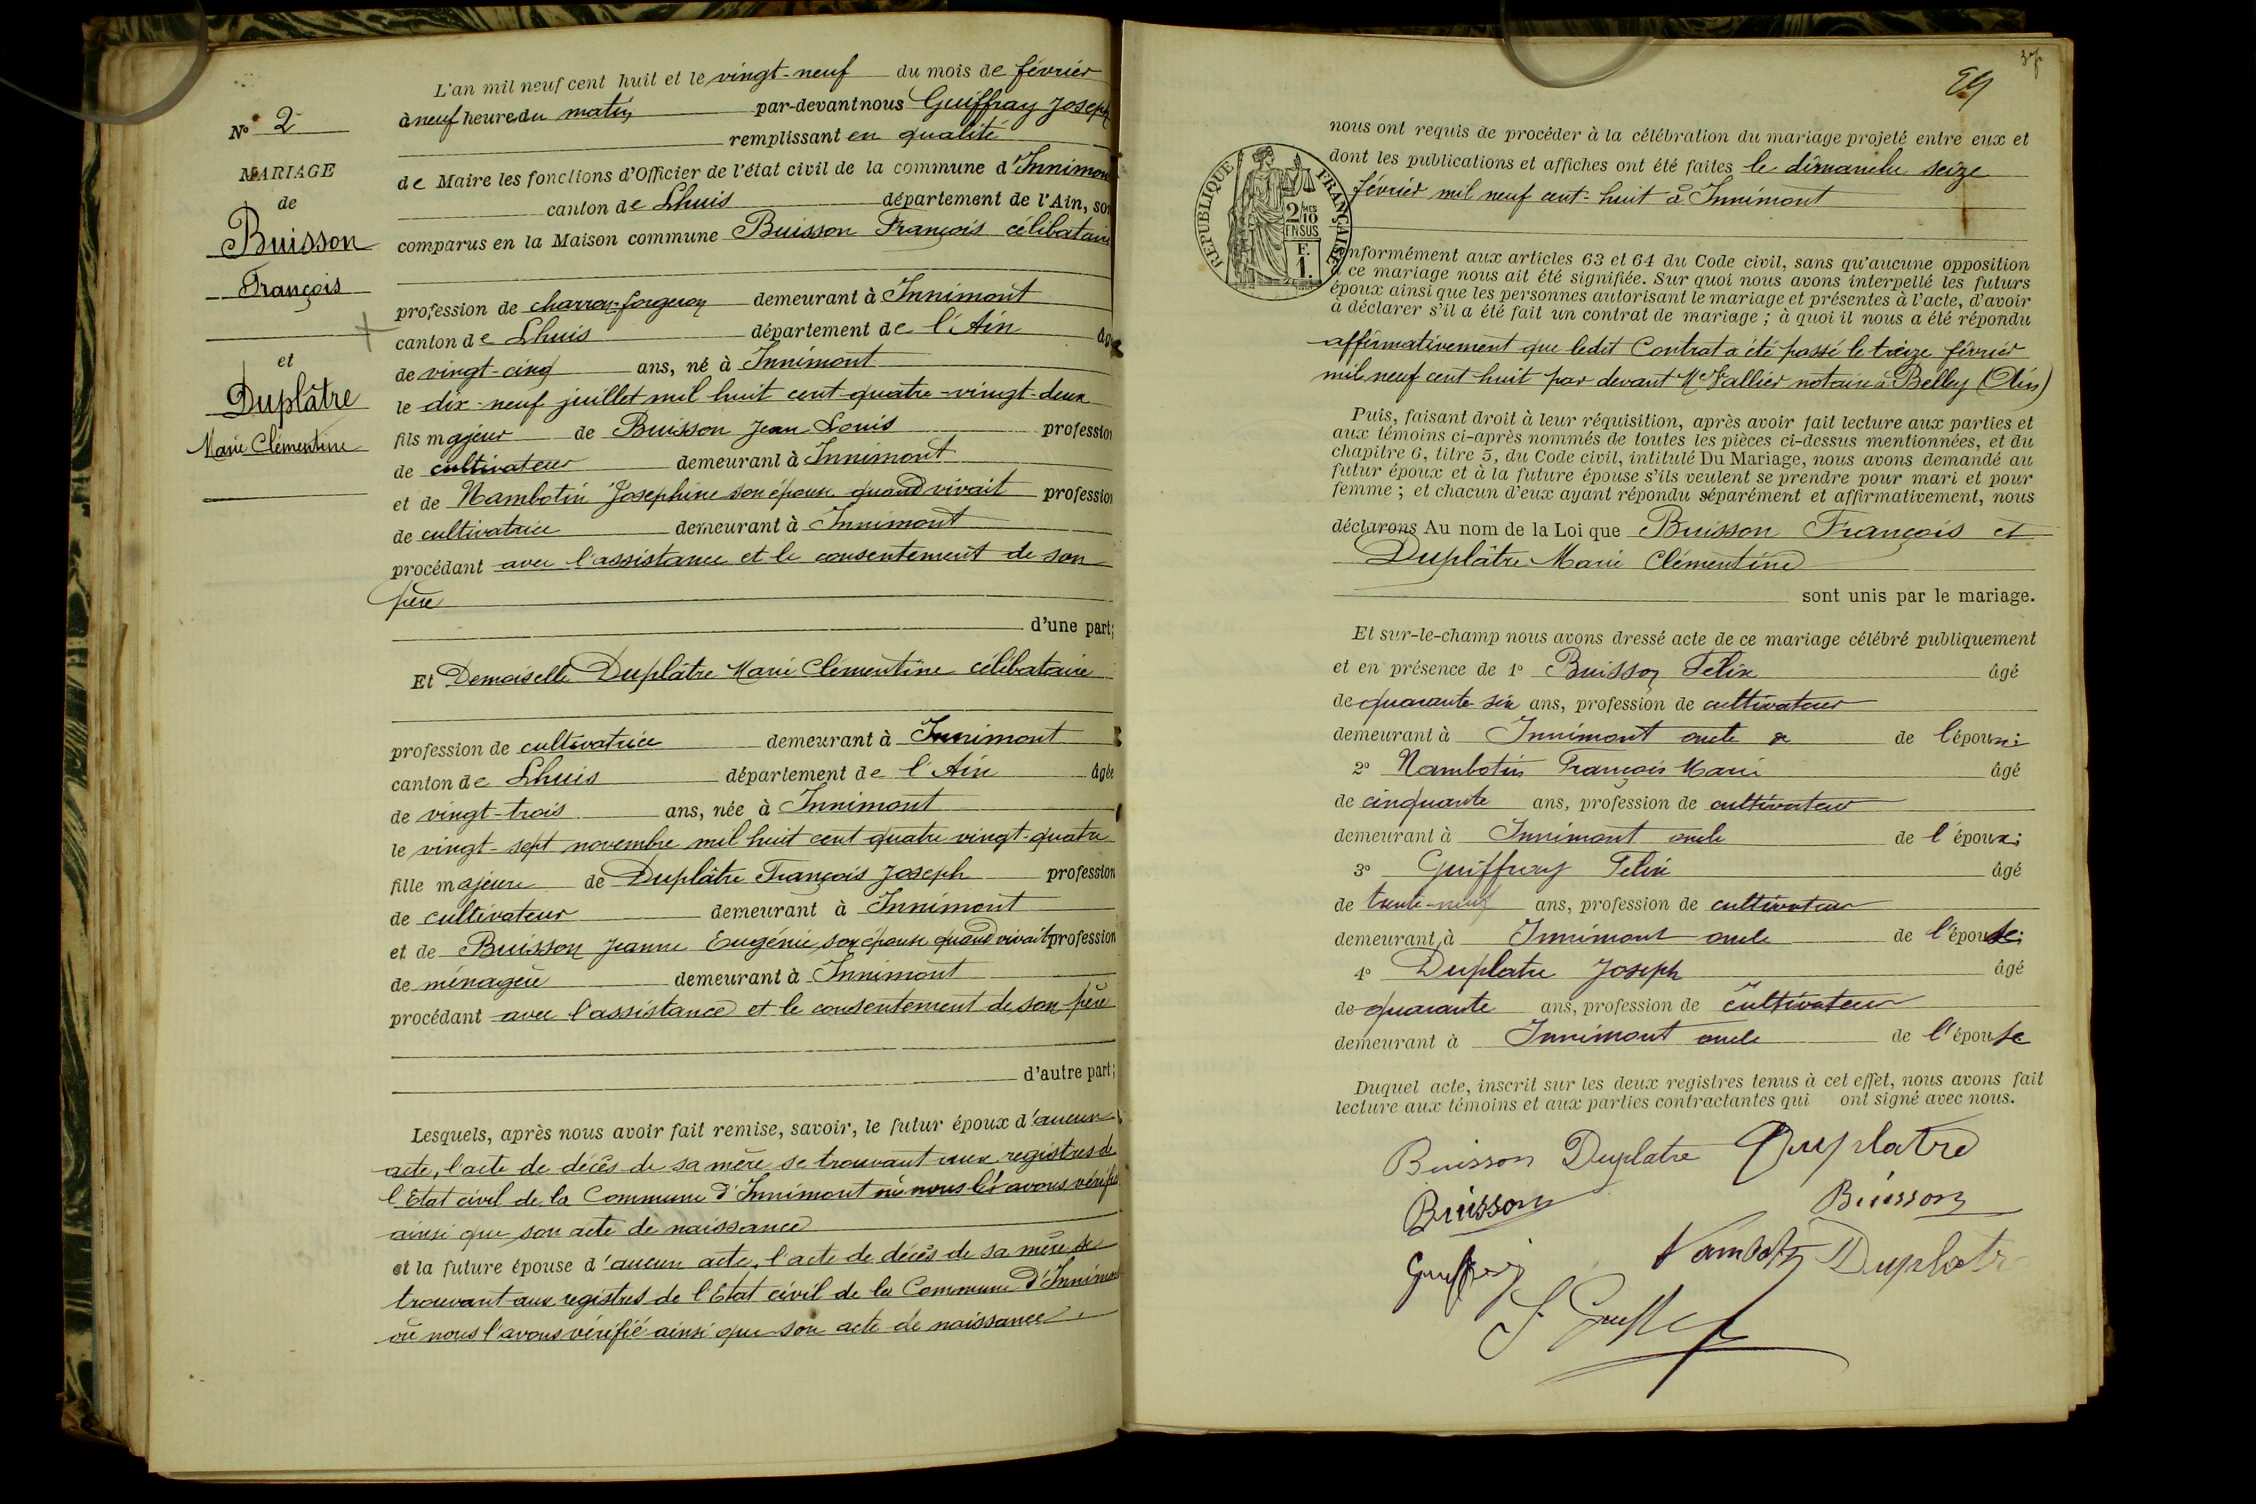 L'an mil neuf cent huit et le vingt-neuf du mois de février
à neuf heure du matin par-devant nous Guiffray Joseph
remplissant en qualité
de Maire les fonctions d'Officier de l'état civil de la commune d'Innimont
canton de Lhuis département de l'Ain, son
comparus en la Maison commune Buisson François célibataire
profession de charron-forgeron demeurant à Innimont
canton de Lhuis département de l'Ain âgé
de vingt-cinq ans, né à Innimont
le dix-neuf juillet mil huit cent quatre-vingt-deux
fils majeur de Buisson Jean Louis profession
de cultivateur demeurant à Innimont
et de Nambotin Josephine son épouse quand vivait profession
de cultivatrice demeurant à Innimont
procédant avec l'assistance et le consentement de son
père
d'une part;
Et Demoiselle Duplâtre Marie Clémentine célibataire
profession de cultivatrice demeurant à Innimont
canton de Lhuis département de l'Ain âgée
de vingt-trois ans, née à Innimont
le vingt-sept novembre mil huit cent quatre vingt-quatre
fille majeure de Duplâtre François Joseph profession
de cultivateur demeurant à Innimont
et de Buisson Jeanne Eugénie son épouse quand vivait profession
de ménagère demeurant à Innimont
procédant avec l'assistance et le consentement de son père
d'autre part;
Lesquels, après nous avoir fait remise, savoir, le futur époux d'aucun
acte, l'acte de décès de sa mère se trouvant aux registres de
l'Etat civil de la Commune d'Innimont où nous l'avons vérifié
ainsi que son acte de naissance
et la future épouse d'aucun acte, l'acte de décès de sa mère se
trouvant aux registres de l'Etat civil de la Commune d'Innimont
où nous l'avons vérifié ainsi que son acte de naissance
N° 2
MARIAGE
de
Buisson
François
et
Duplâtre
Marie Clémentine
29
nous ont requis de procéder à la célébration du mariage projeté entre eux et
dont les publications et affiches ont été faites le dimanche seize
février mil neuf cent-huit à Innimont
RÉPUBLIQUE FRANÇAISE
2/10
EN SUS
F.
1.
conformément aux articles 63 et 64 du Code civil, sans qu'aucune opposition
à ce mariage nous ait été signifiée. Sur quoi nous avons interpellé les futurs
époux ainsi que les personnes autorisant le mariage et présentes à l'acte, d'avoir
à déclarer s'il a été fait un contrat de mariage ; à quoi il nous a été répondu
affirmativement que ledit Contrat a été passé le treize février
mil neuf cent huit par devant Me Vallier notaire à Belley (Ain)
Puis, faisant droit à leur réquisition, après avoir fait lecture aux parties et
aux témoins ci-après nommés de toutes les pièces ci-dessus mentionnées, et du
chapitre 6, titre 5, du Code civil, intitulé Du Mariage, nous avons demandé au
futur époux et à la future épouse s'ils veulent se prendre pour mari et pour
femme ; et chacun d'eux ayant répondu séparément et affirmativement, nous
déclarons Au nom de la Loi que Buisson François et
Duplâtre Marie Clémentine
sont unis par le mariage.
Et sur-le-champ nous avons dressé acte de ce mariage célébré publiquement
et en présence de 1° Buisson Felix âgé
de quarante six ans, profession de cultivateur
demeurant à Innimont oncle de l'époux;
2° Nambotin François Marie âgé
de cinquante ans, profession de cultivateur
demeurant à Innimont oncle de l'époux;
3° Guiffray Felix âgé
de trente-neuf ans, profession de cultivateur
demeurant à Innimont oncle de l'épouse;
4° Duplatre Joseph âgé
de quarante ans, profession de cultivateur
demeurant à Innimont oncle de l'épouse
Duquel acte, inscrit sur les deux registres tenus à cet effet, nous avons fait
lecture aux témoins et aux parties contractantes qui ont signé avec nous.
Buisson Duplatre Duplatre
Buisson Buisson
Nambotin Duplatre